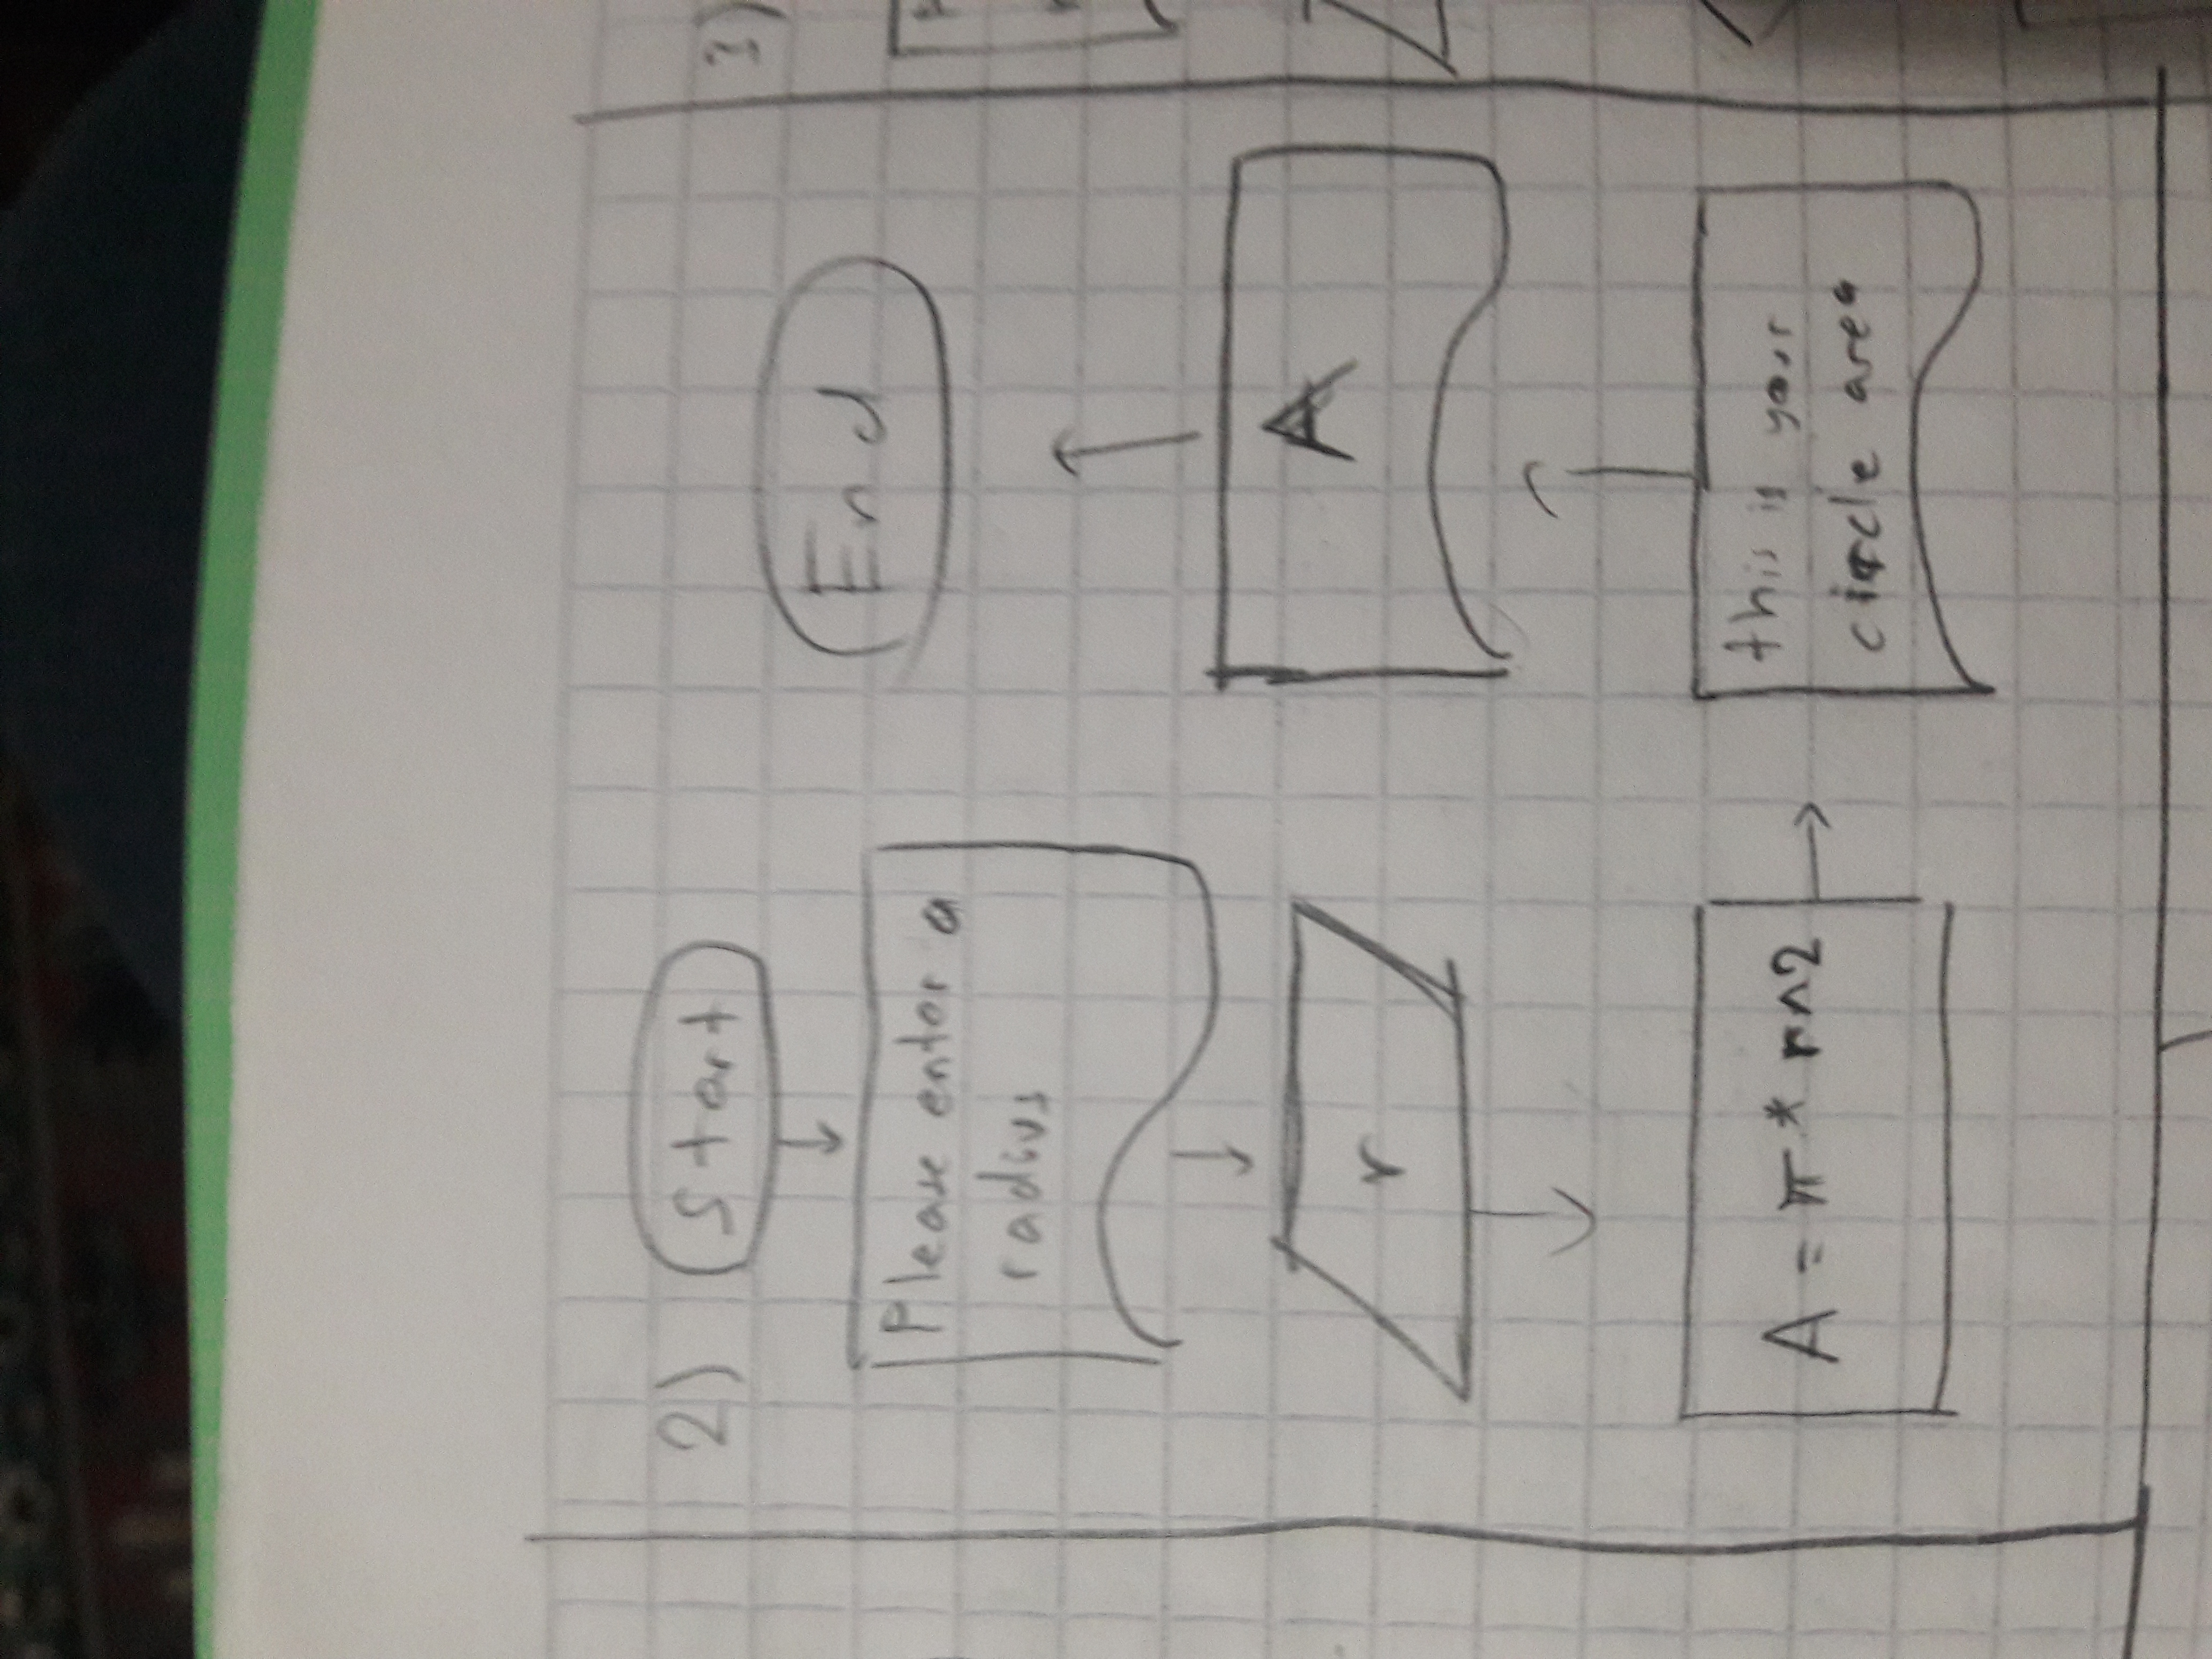 2)
Start
Please enter a
radius
r
A = π * r^2
this is your
circle area
A
End
3)